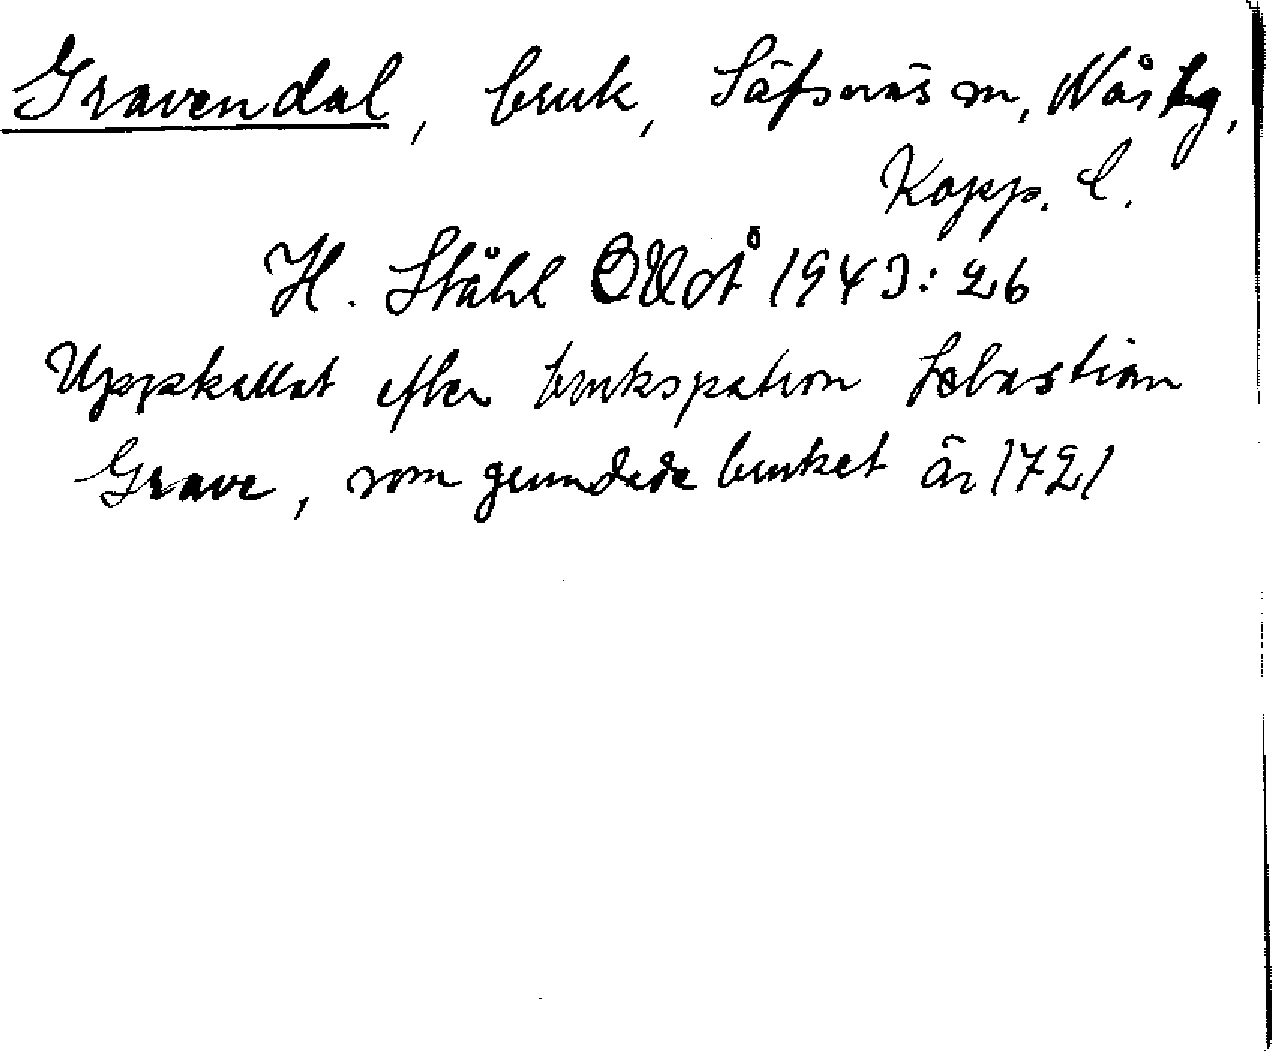 Gravendal, bruk, Säfsnäs sn, Nås tg,
Kopp. l.
H. Ståhl OUÅ 1943: 26
Uppkallat efter brukspatron Sebastian
Grave, som grundade bruket år 1721